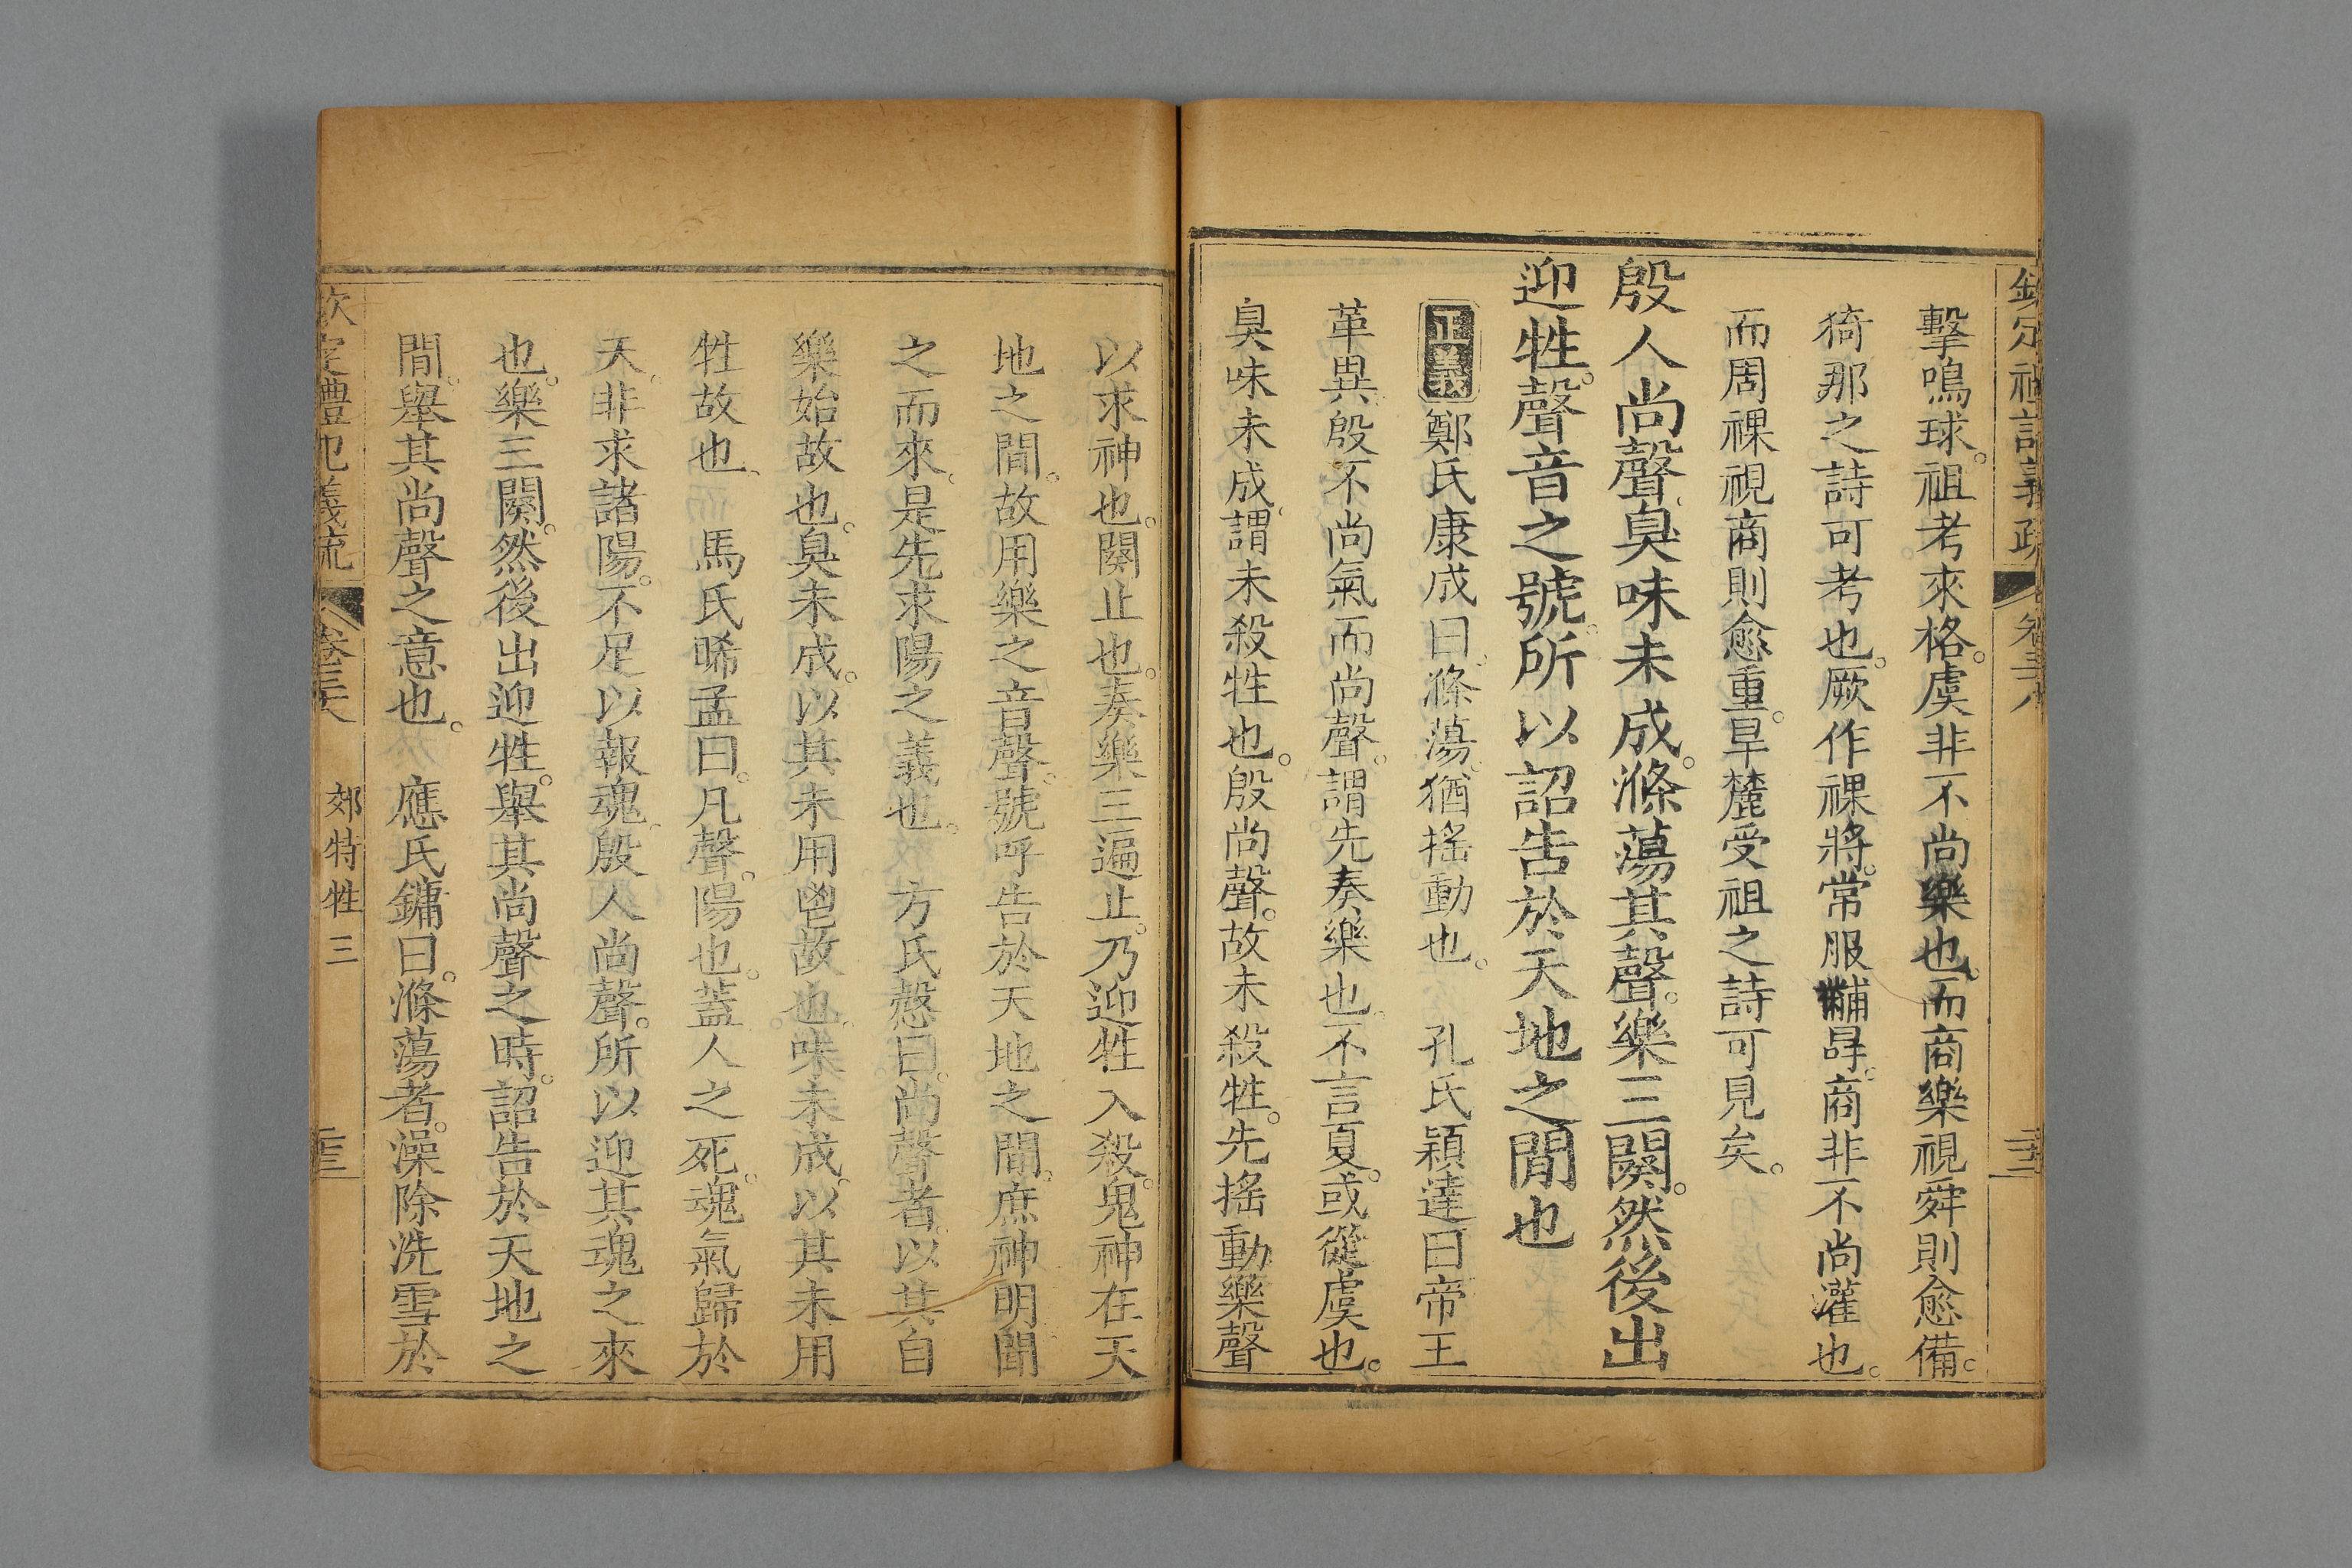 欽定禮記義疏 卷三十六
擊鳴球。祖考來格。虞非不尚樂也。而商樂視舜則愈備。
猗那之詩可考也。厥作祼將。常服黼冔。商非不尚灌也。
而周祼視商則愈重。旱麓受祖之詩可見矣。
殷人尚聲。臭味未成。滌蕩其聲。樂三闋。然後出
迎牲。聲音之號。所以詔告於天地之閒也
正義 鄭氏康成曰。滌蕩。猶搖動也。 孔氏穎達曰。帝王
革異。殷不尚氣而尚聲。謂先奏樂也。不言夏。或從虞也。
臭味未成。謂未殺牲也。殷尚聲。故未殺牲。先搖動樂聲
以求神也。闋止也。奏樂三遍止。乃迎牲入殺。鬼神在天
地之間。故用樂之音聲。號呼告於天地之間。庶神明聞
之而來。是先求陽之義也。 方氏慤曰。尚聲者。以其自
樂始故也。臭未成。以其未用鬯故也。味未成。以其未用
牲故也。 馬氏晞孟曰。凡聲。陽也。蓋人之死。魂氣歸於
天。非求諸陽。不足以報魂。殷人尚聲。所以迎其魂之來
也。樂三闋。然後出迎牲。舉其尚聲之時。詔告於天地之
間。舉其尚聲之意也。 應氏鏞曰。滌蕩者。澡除洗雪於
欽定禮記義疏 卷三十六 郊特牲 三